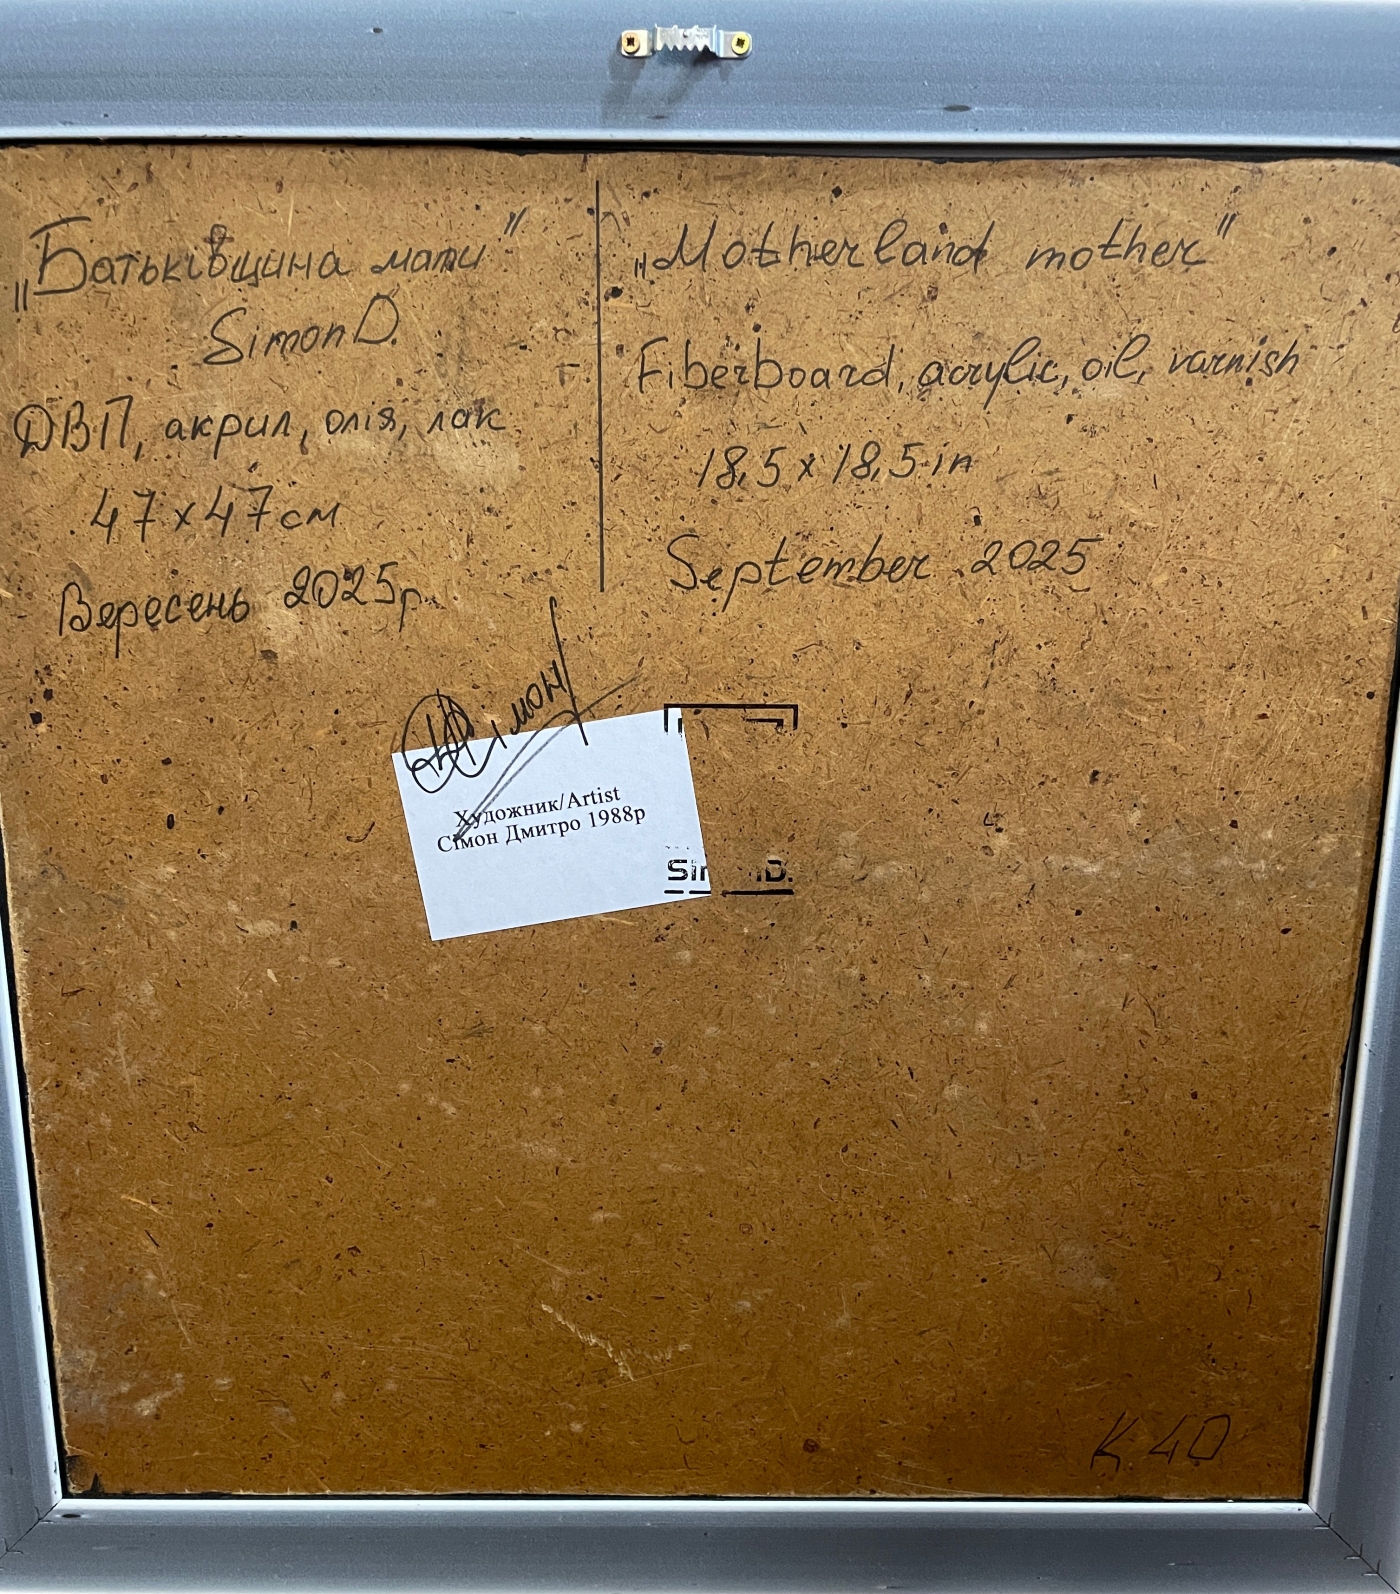 „Батьківщина мати"
SimonD.
ДВП, акрил, олія, лак
47x47см
Вересень 2025р.
„Motherland mother"
Fiberboard, acrylic, oil, varnish
18,5 x 18,5 in
September 2025
Сімон
Художник/Artist
Сімон Дмитро 1988р
K 40